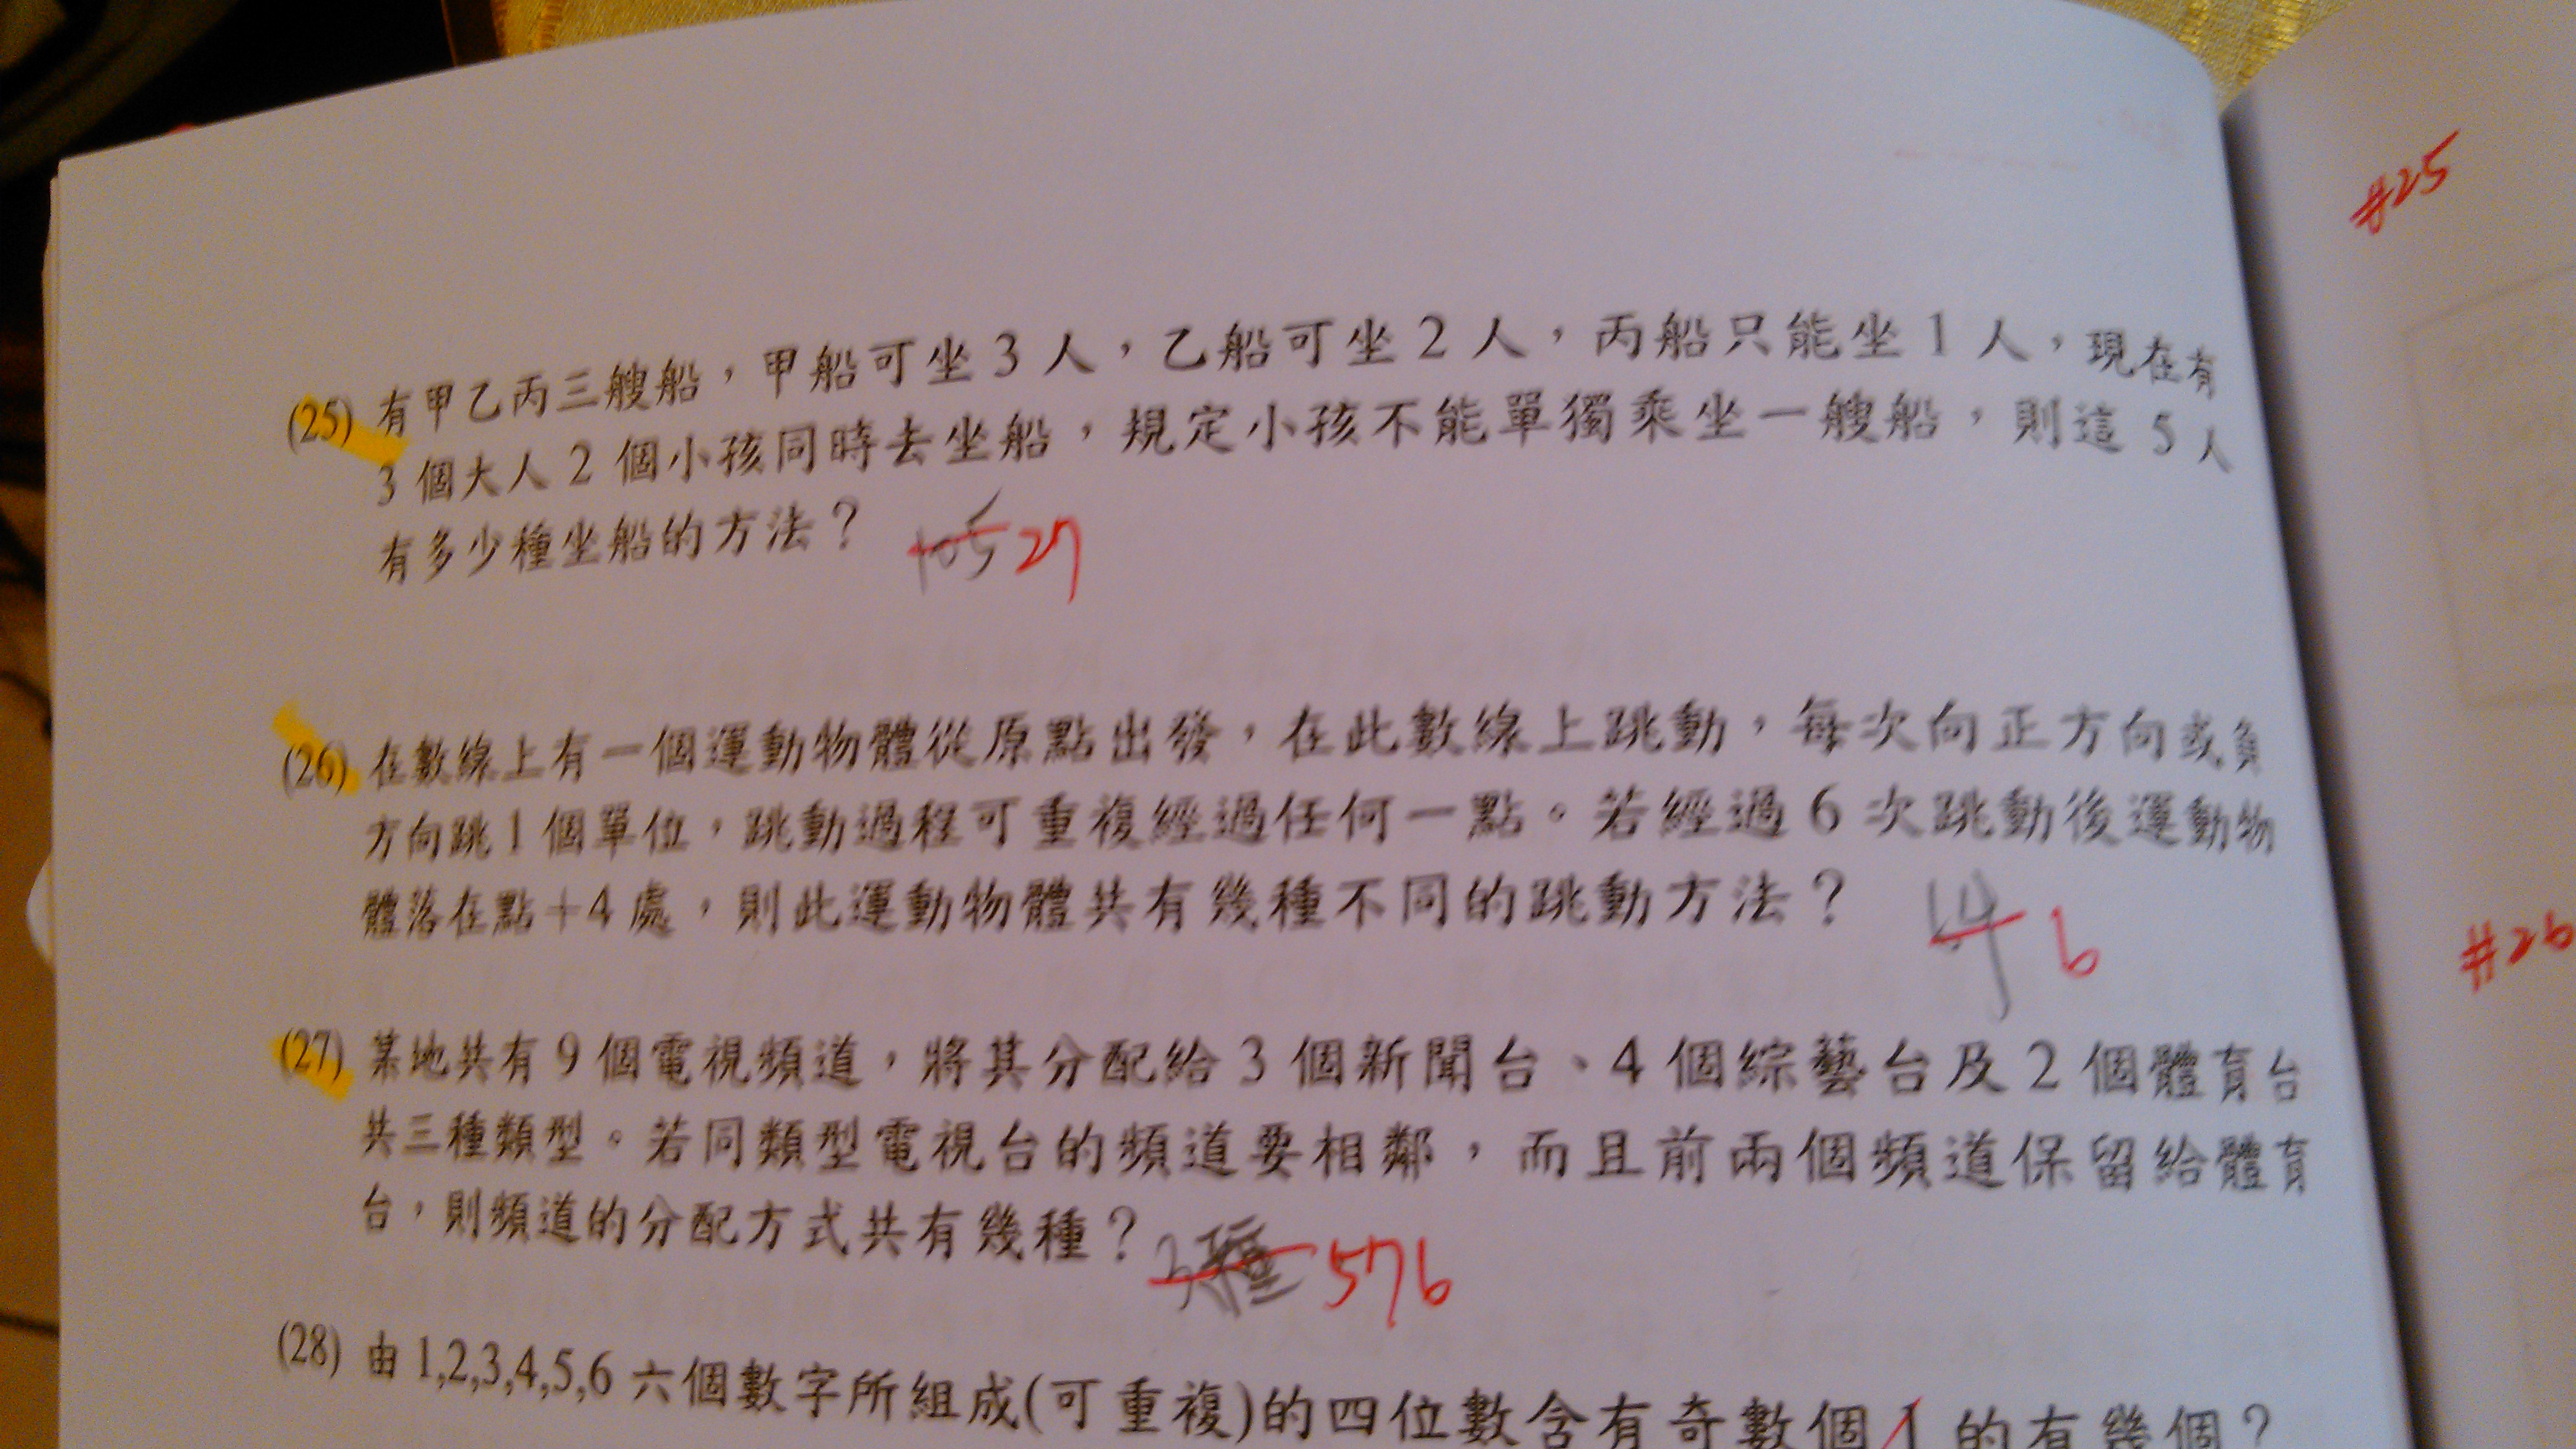 #25
(25) 有甲乙丙三艘船，甲船可坐3人，乙船可坐2人，丙船只能坐1人，現在有
3個大人2個小孩同時去坐船，規定小孩不能單獨乘坐一艘船，則這5人
有多少種坐船的方法？ 105 27
(26) 在數線上有一個運動物體從原點出發，在此數線上跳動，每次向正方向或負
方向跳1個單位，跳動過程可重複經過任何一點。若經過6次跳動後運動物
體落在點+4處，則此運動物體共有幾種不同的跳動方法？ 14 6
#26
(27) 某地共有9個電視頻道，將其分配給3個新聞台、4個綜藝台及2個體育台
共三種類型。若同類型電視台的頻道要相鄰，而且前兩個頻道保留給體育
台，則頻道的分配方式共有幾種？ 3種 576
(28) 由1,2,3,4,5,6六個數字所組成(可重複)的四位數含有奇數個1的有幾個？